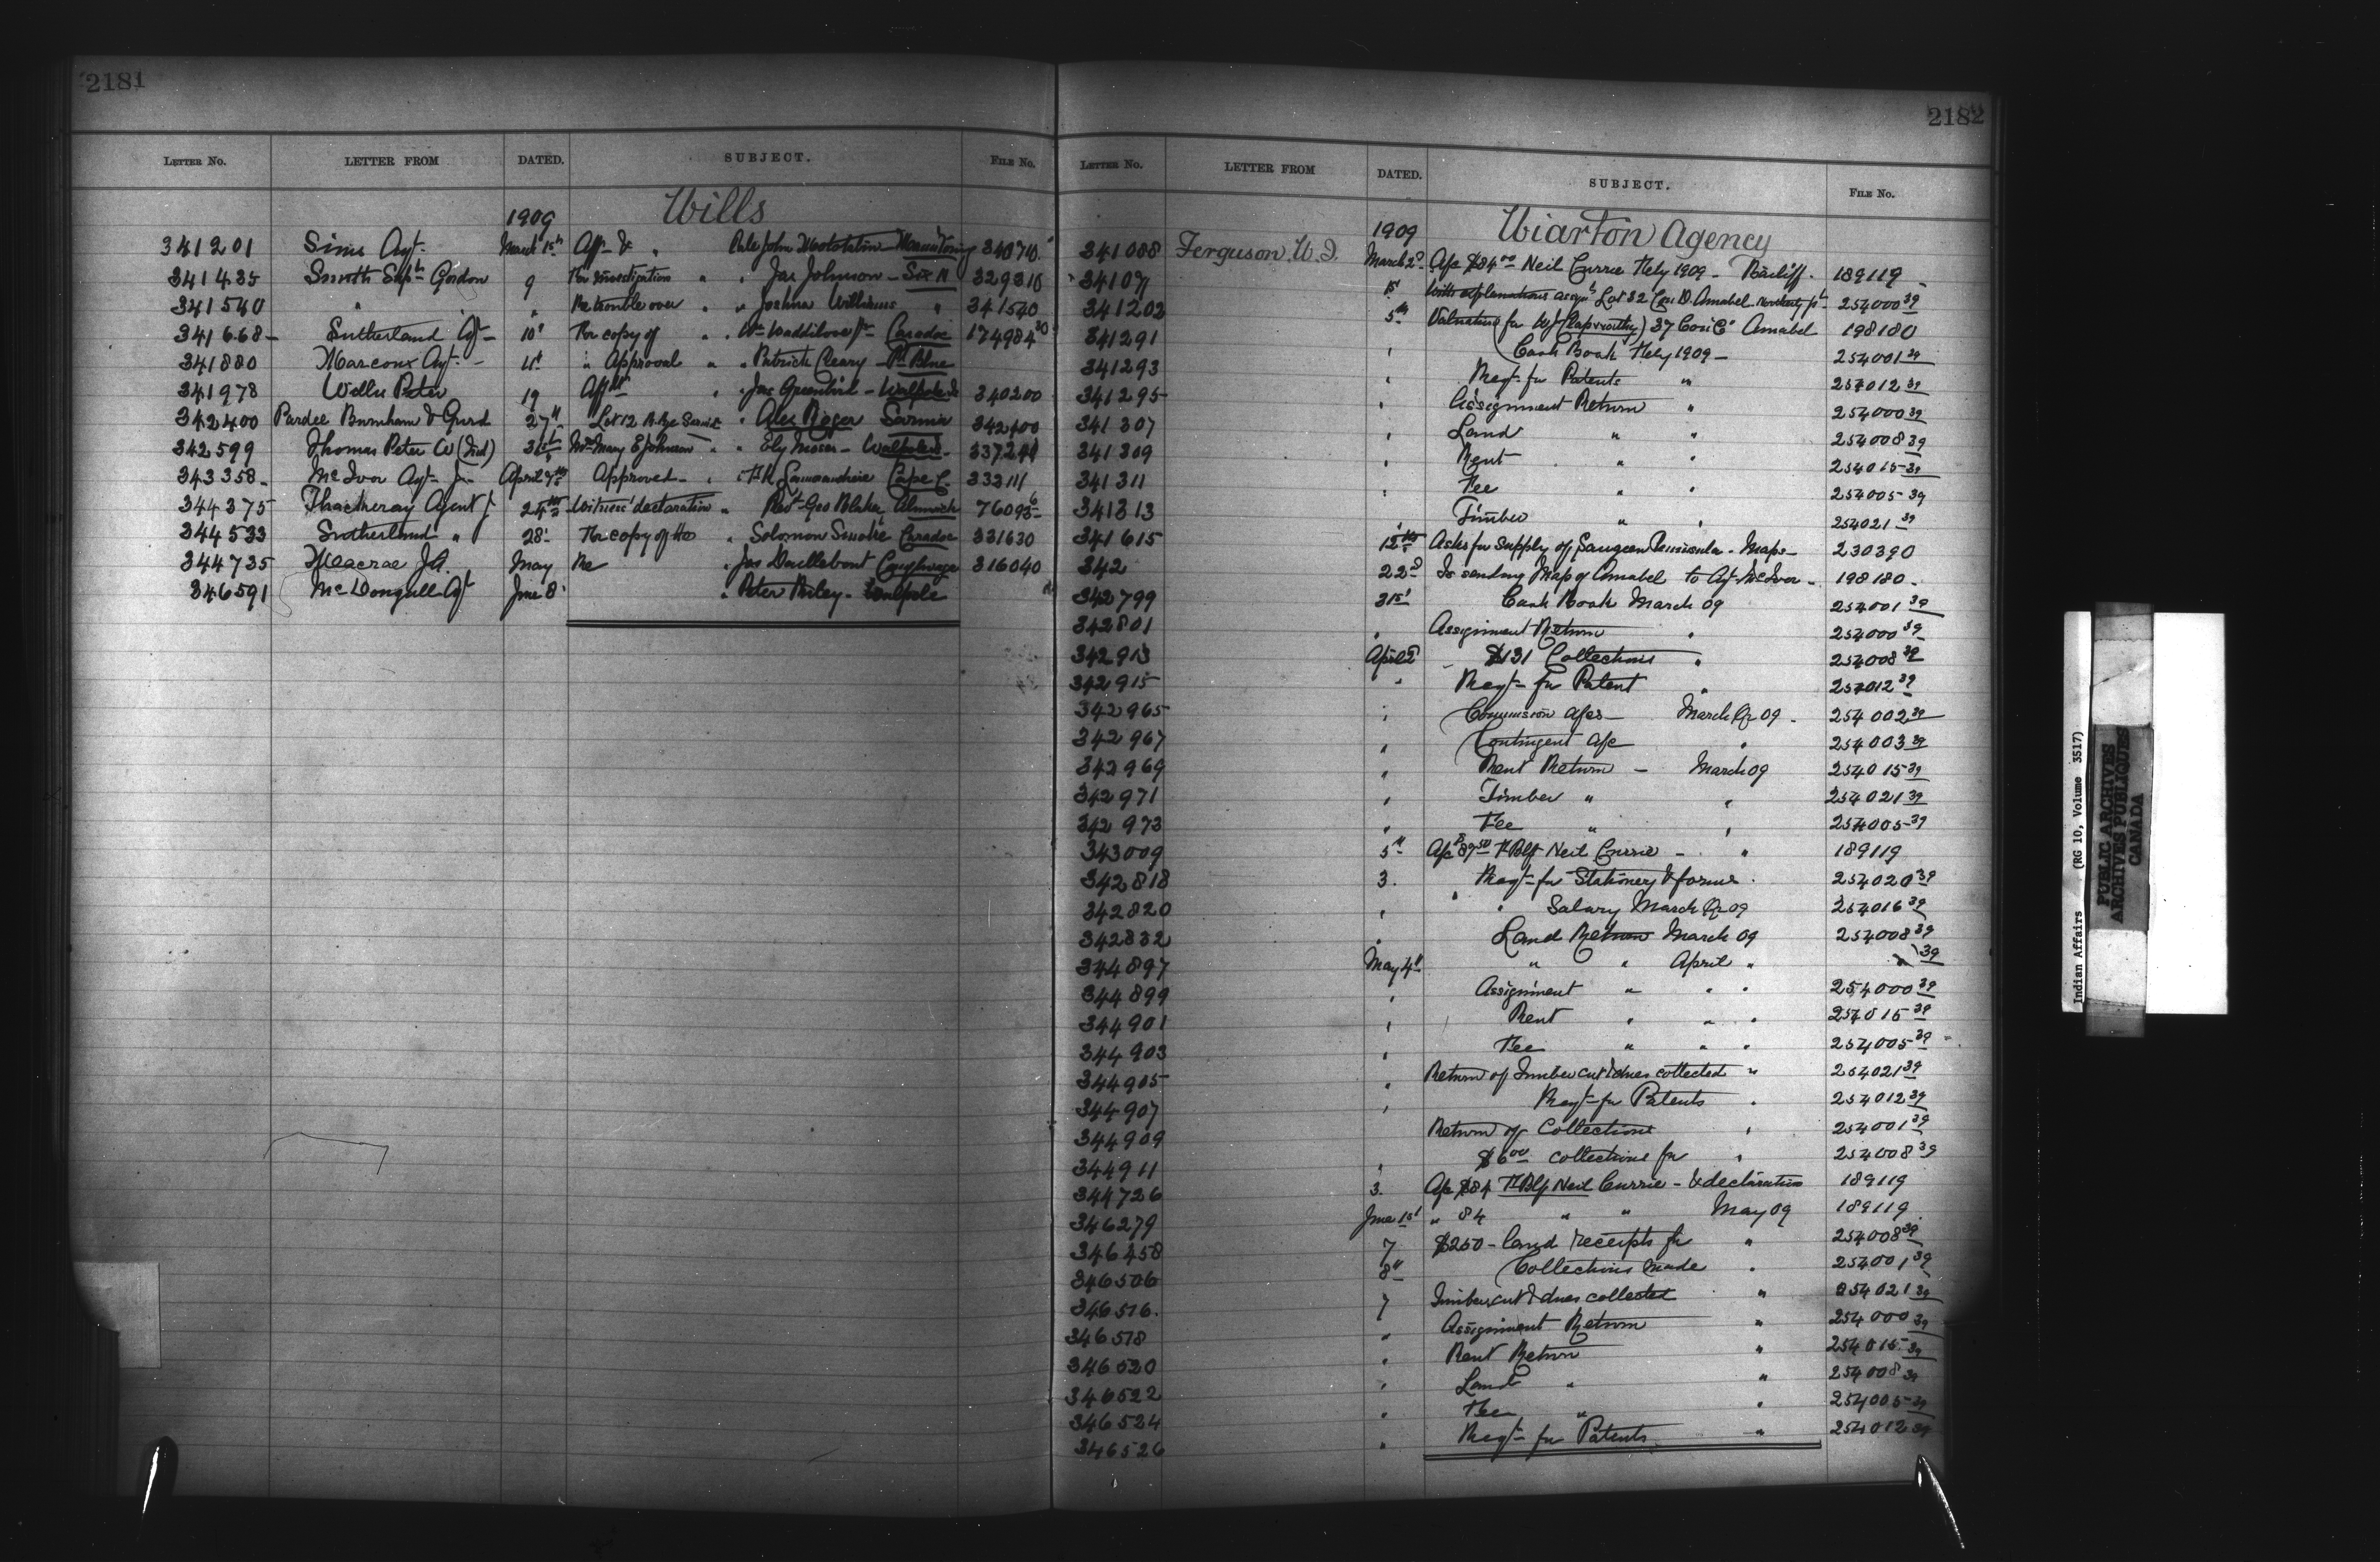 2181
LETTER NO. LETTER FROM DATED. SUBJECT. FILE NO.
1909 Wills
341201 Sims Agt March 15th Aff & " Pale John Manitowaning 340710
341435 Smith Supt Gordon 9 For investigation " " Jas Johnson - Six N 329316
341540 " " Re trouble over " " Joshua Williams " 341540
341668 - Sutherland Agt - 10" For copy of " " Wm Waddilove Jr Caradoc 174984 30
341880 Marcoux Agt - 11th " Approval " " Patrick Cleary - Pt Blue
341978 Willis Peter 19 Affdt " Jas Greenbird - Walpole Is 340200
342400 Pardee Burnham & Gurd 27th Lot 12 Sarnia " Alex Roger Sarnia 342400
342599 Thomas Peter W (Ind) 31st Mrs Mary E Johnson " " Ely Nisser - Walpole Is. 337244
343358 - McIvor Agt Jn April 7th Approved - " F.H. Lamorandiere Cape C. 333111
344375 Thackeray Agent J 24th Witness' declaration " Revt Geo Blaker Alnwick 76093 6
344533 Sutherland " 28" For copy of the " Solomon Smoke Caradoc 331630
344735 Macrae J.A. May Re " Jas Daillebout Caughnaga 316040
346591 McDougall Agt June 8" " Peter Riley - Walpole
2182
LETTER NO. LETTER FROM DATED. SUBJECT. FILE NO.
1909 Wiarton Agency
341088 Ferguson W.I. March 2d A/c $84 00 Neil Currie Feby 1909 - Bailiff. 189119
341077 1st With explanations assgnt Lot 32 Con D. Amabel 254000 39
341202 5th Valuation for W J (Rapworthy) 37 Con C" Amabel 198180
341291 " Cash Book Feby 1909 - 254001 39
341293 " Reqt for Patents " 254012 39
341295 " Assignment Return " 254000 39
341307 " Land " " 254008 39
341309 " Rent " " 254015 39
341311 " Fee " " 254005 39
341313 " Timber " " 254021 39
341615 12th Asks for supply of Saugeen Peninsula - Maps - 230390
342 22d Is sending Map of Amabel to Agt McIvor - 198180 -
342799 31st Cash Book March 09 254001 39
342801 " Assignment Return " 254000 39
342913 April 2d $131 Collections " 254008 39
342915 " Reqt for Patent " 254012 39
342965 " Commission a/cs - March Qr 09 - 254002 39
342967 " Contingent a/c " 254003 39
342969 " Rent Return - March 09 254015 39
342971 " Timber " " 254021 39
342973 " Fee " " 254005 39
343009 5th A/c $87 50 F Blf Neil Currie - " 189119
342818 3. Reqt for Stationery & forms. 254020 39
342820 " " Salary March Qr 09 254016 39
342832 " Land Return March 09 254008 39
344897 May 4th " " April " " 39
344899 " Assignment " " " 254000 39
344901 " Rent " " " 254015 39
344903 " Fee " " " 254005 39
344905 " Return of Timber cut & dues collected " 254021 39
344907 " Reqt for Patents " 254012 39
344909 Return of Collections " 254001 39
344911 " $6 00 collections for " 254008 39
344726 3. A/c $84 F Blf Neil Currie - & declaration 189119
346279 June 1st " 84 " " May 09 189119
346458 7 $250 - land receipts for " 254008 39
346506 8" Collections made " 254001 39
346516. 7 Timber cut & dues collected " 254021 39
346518 " Assignment Return " 254000 39
346520 " Rent Return " 254015 39
346522 " Land " " 254008 39
346524 " Fee " " 254005 39
346526 " Reqt for Patents " 254012 39
Indian Affairs (RG 10, Volume 3517)
PUBLIC ARCHIVES
ARCHIVES PUBLIQUES
CANADA